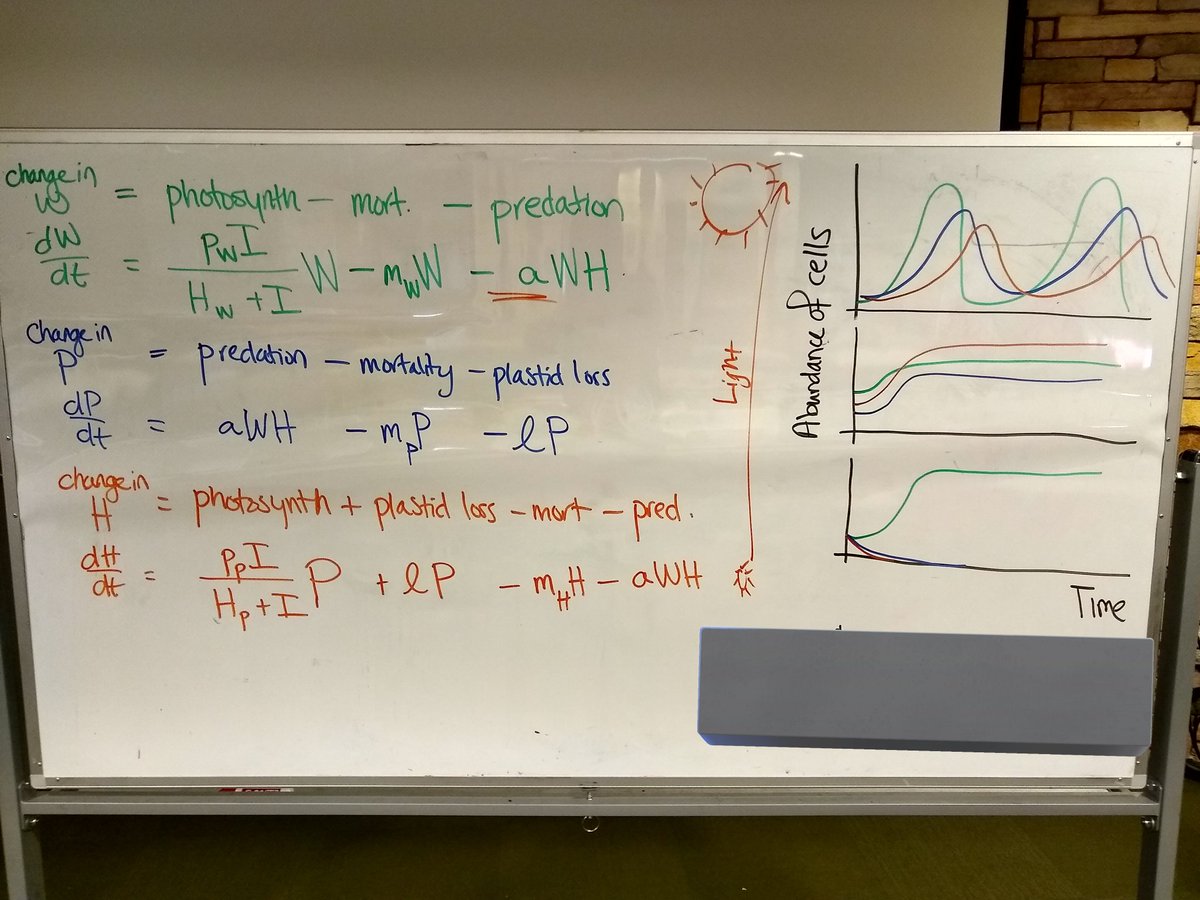 change in
W = photosynth - mort. - predation
dW/dt = p_W I/(H_W + I) W - m_W W - aWH.
Change in
P = predation - mortality - plastid loss
dP/dt = aWH - m_P P - lP
change in
H = photosynth + plastid loss - mort - pred.
dH/dt = p_P I/(H_P + I) P + lP - m_H H - aWH
Light
Abundance of cells
Time